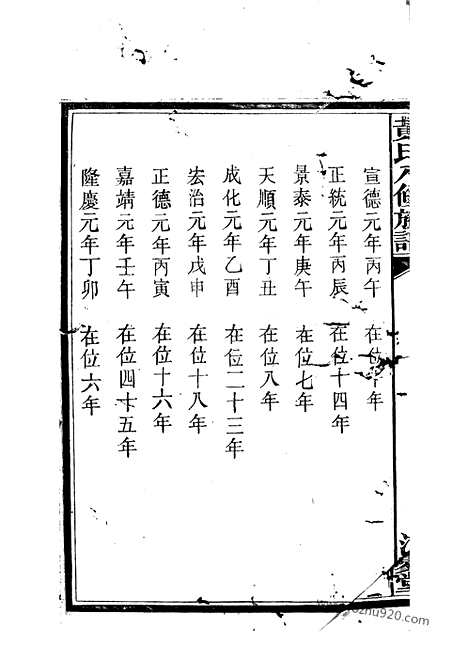 黃氏八修族譜
宣德元年丙午 在位十年
正統元年丙辰 在位十四年
景泰元年庚午 在位七年
天順元年丁丑 在位八年
成化元年乙酉 在位二十三年
宏治元年戊申 在位十八年
正德元年丙寅 在位十六年
嘉靖元年壬午 在位四十五年
隆慶元年丁卯 在位六年
zhu920.com